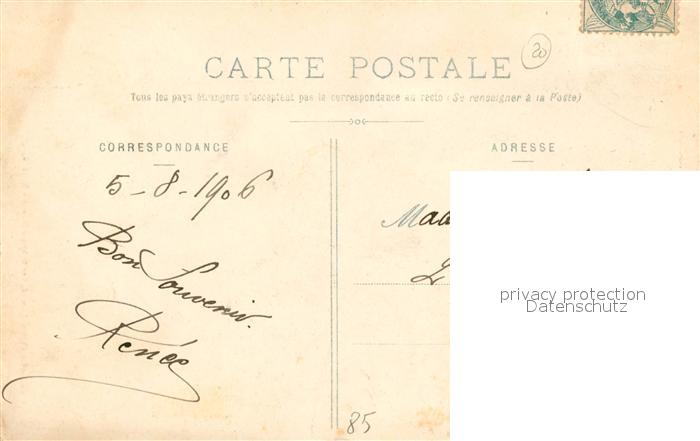 20
CARTE POSTALE
Tous les pays étrangers n'acceptent pas la correspondance au recto (Se renseigner à la Poste)
CORRESPONDANCE
ADRESSE
5-8-1906
Bon Souvenir.
Renée
Mad
85
privacy protection
Datenschutz